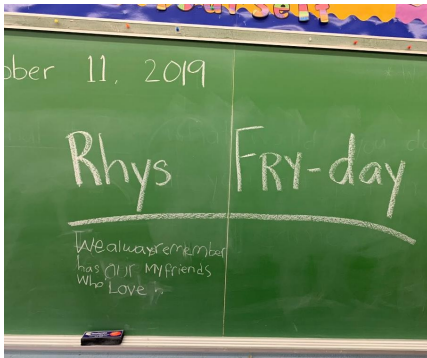 ourself
ober 11, 2019
Rhys FRY-day
We always remember
has our My friends
Who Love